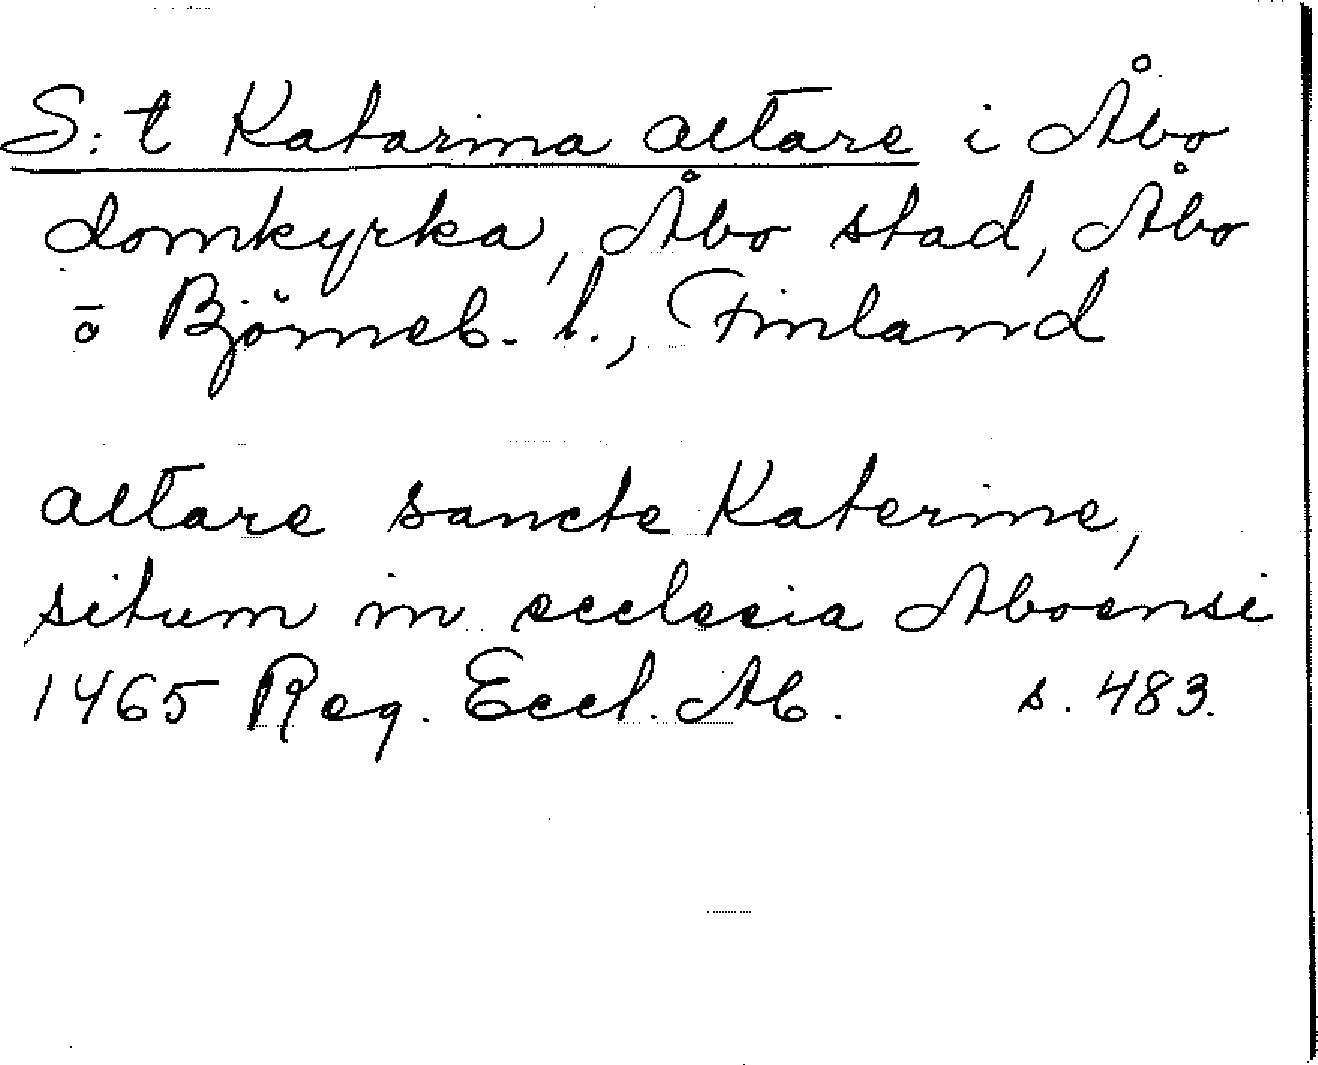 S:t Katarina altare i Åbo
domkyrka, Åbo stad, Åbo
o Björneb. l., Finland
altare sancte Katerine,
situm in ecclesia Aboensi
1465 Reg. Eccl. Ab. s. 483.